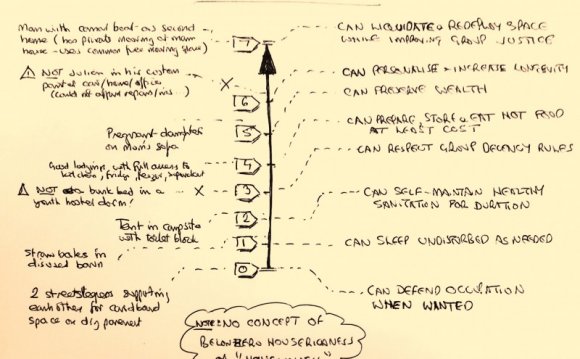 Man with canal boat as second
home (has private mooring at main
house - uses common free mooring spare)
⚠ NOT Julien in his custom
paint at cars/home/office
(could not afford repairs/ins...)
X
Pregnant daughter
on mom's sofa
Good lodgings, with full access to
kitchen, fridge, freezer,
⚠ NOT a bunk bed in a
youth hostel dorm!
X
Tent in campsite
with toilet block
Straw bales in
disused barn
2 streetsleepers supporting
each other for cardboard
space on dry pavement
7
6
5
4
3
2
1
0
CAN LIQUIDATE & REDEPLOY SPACE
WHILE IMPROVING GROUP JUSTICE
CAN PERSONALISE & INCREASE LONGEVITY
CAN PRESERVE WEALTH
CAN PREPARE STORE & EAT HOT FOOD
AT LEAST COST
CAN RESPECT GROUP DECENCY RULES
CAN SELF-MAINTAIN HEALTHY
SANITATION FOR DURATION
CAN SLEEP UNDISTURBED AS NEEDED
CAN DEFEND OCCUPATION
WHEN WANTED
NOTE: NO CONCEPT OF
BELOW ZERO HOUSERICHNESS